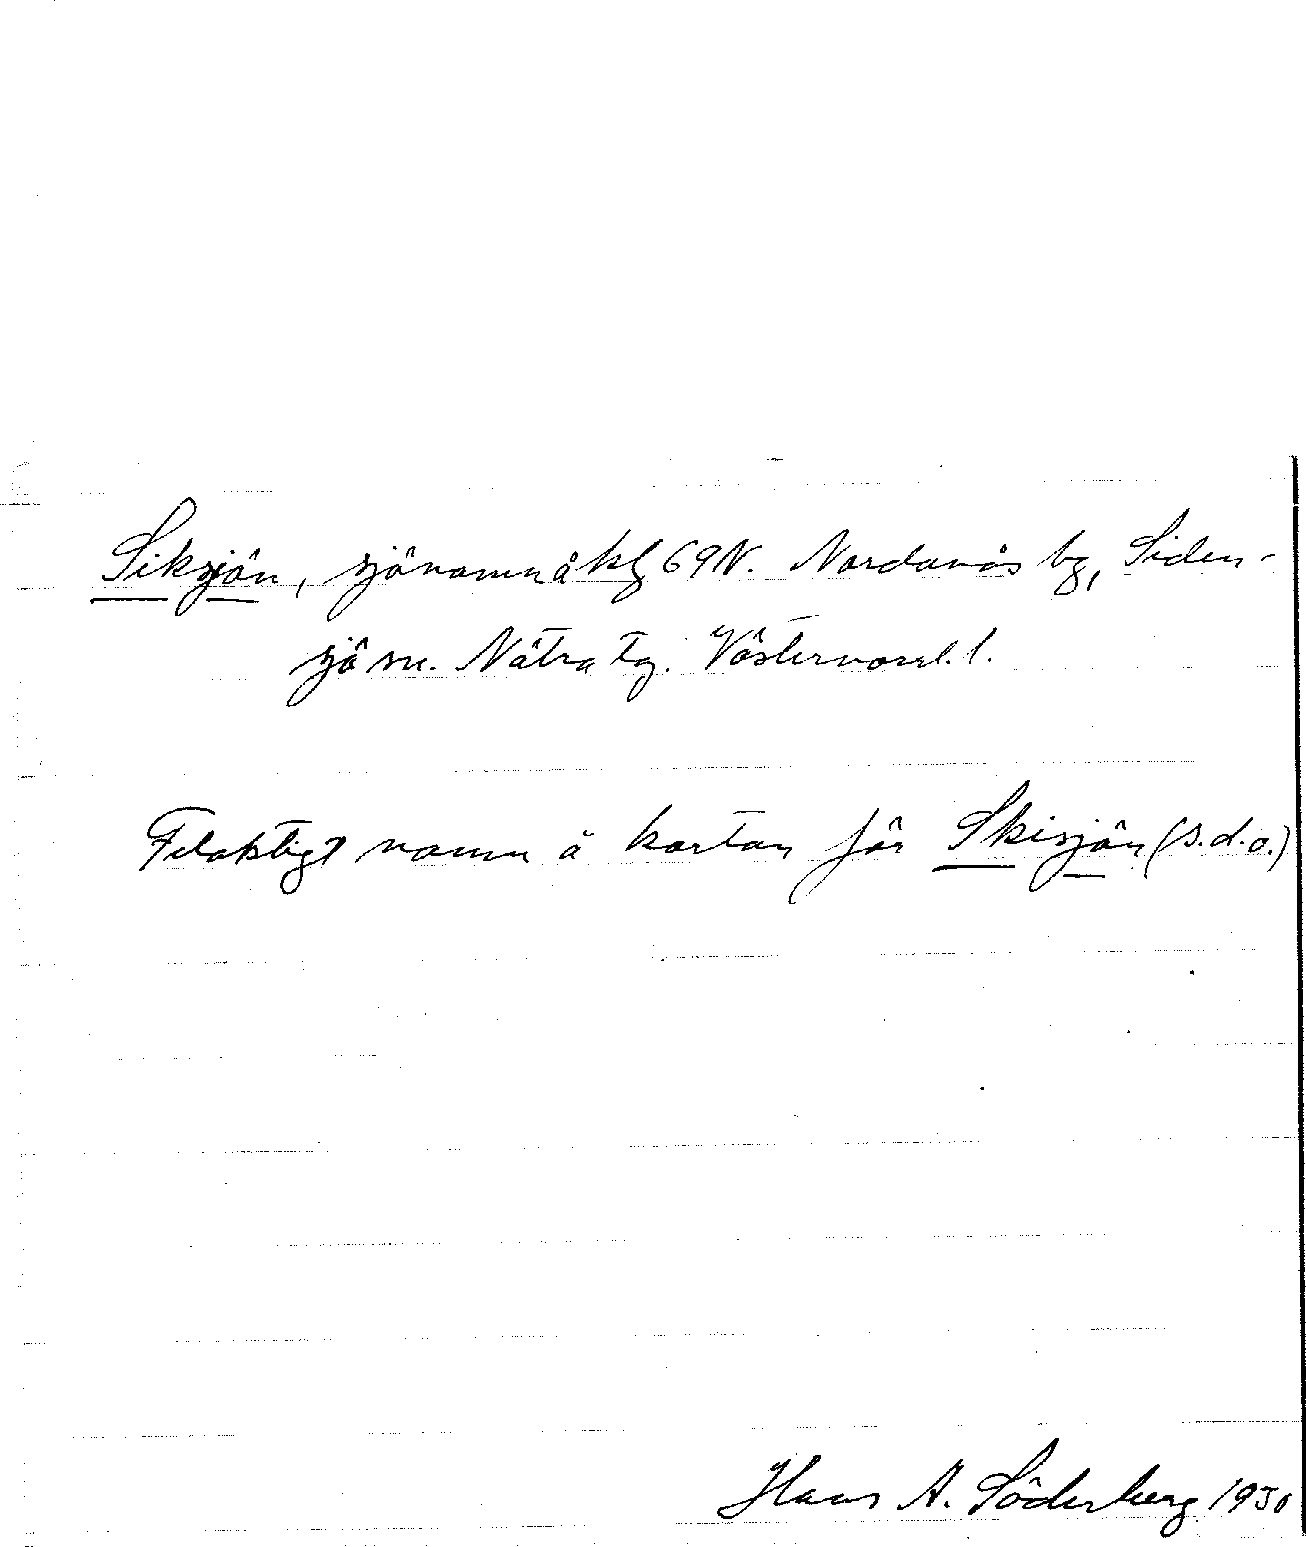 Siksjön, sjönamn å kbl 69N. Nordanås by, Siden-
sjö sn. Nätra tg. Västernorrl. l.
Felaktigt namn å kartan för Skisjön (s.d.o.)
Hans A. Söderberg 1930